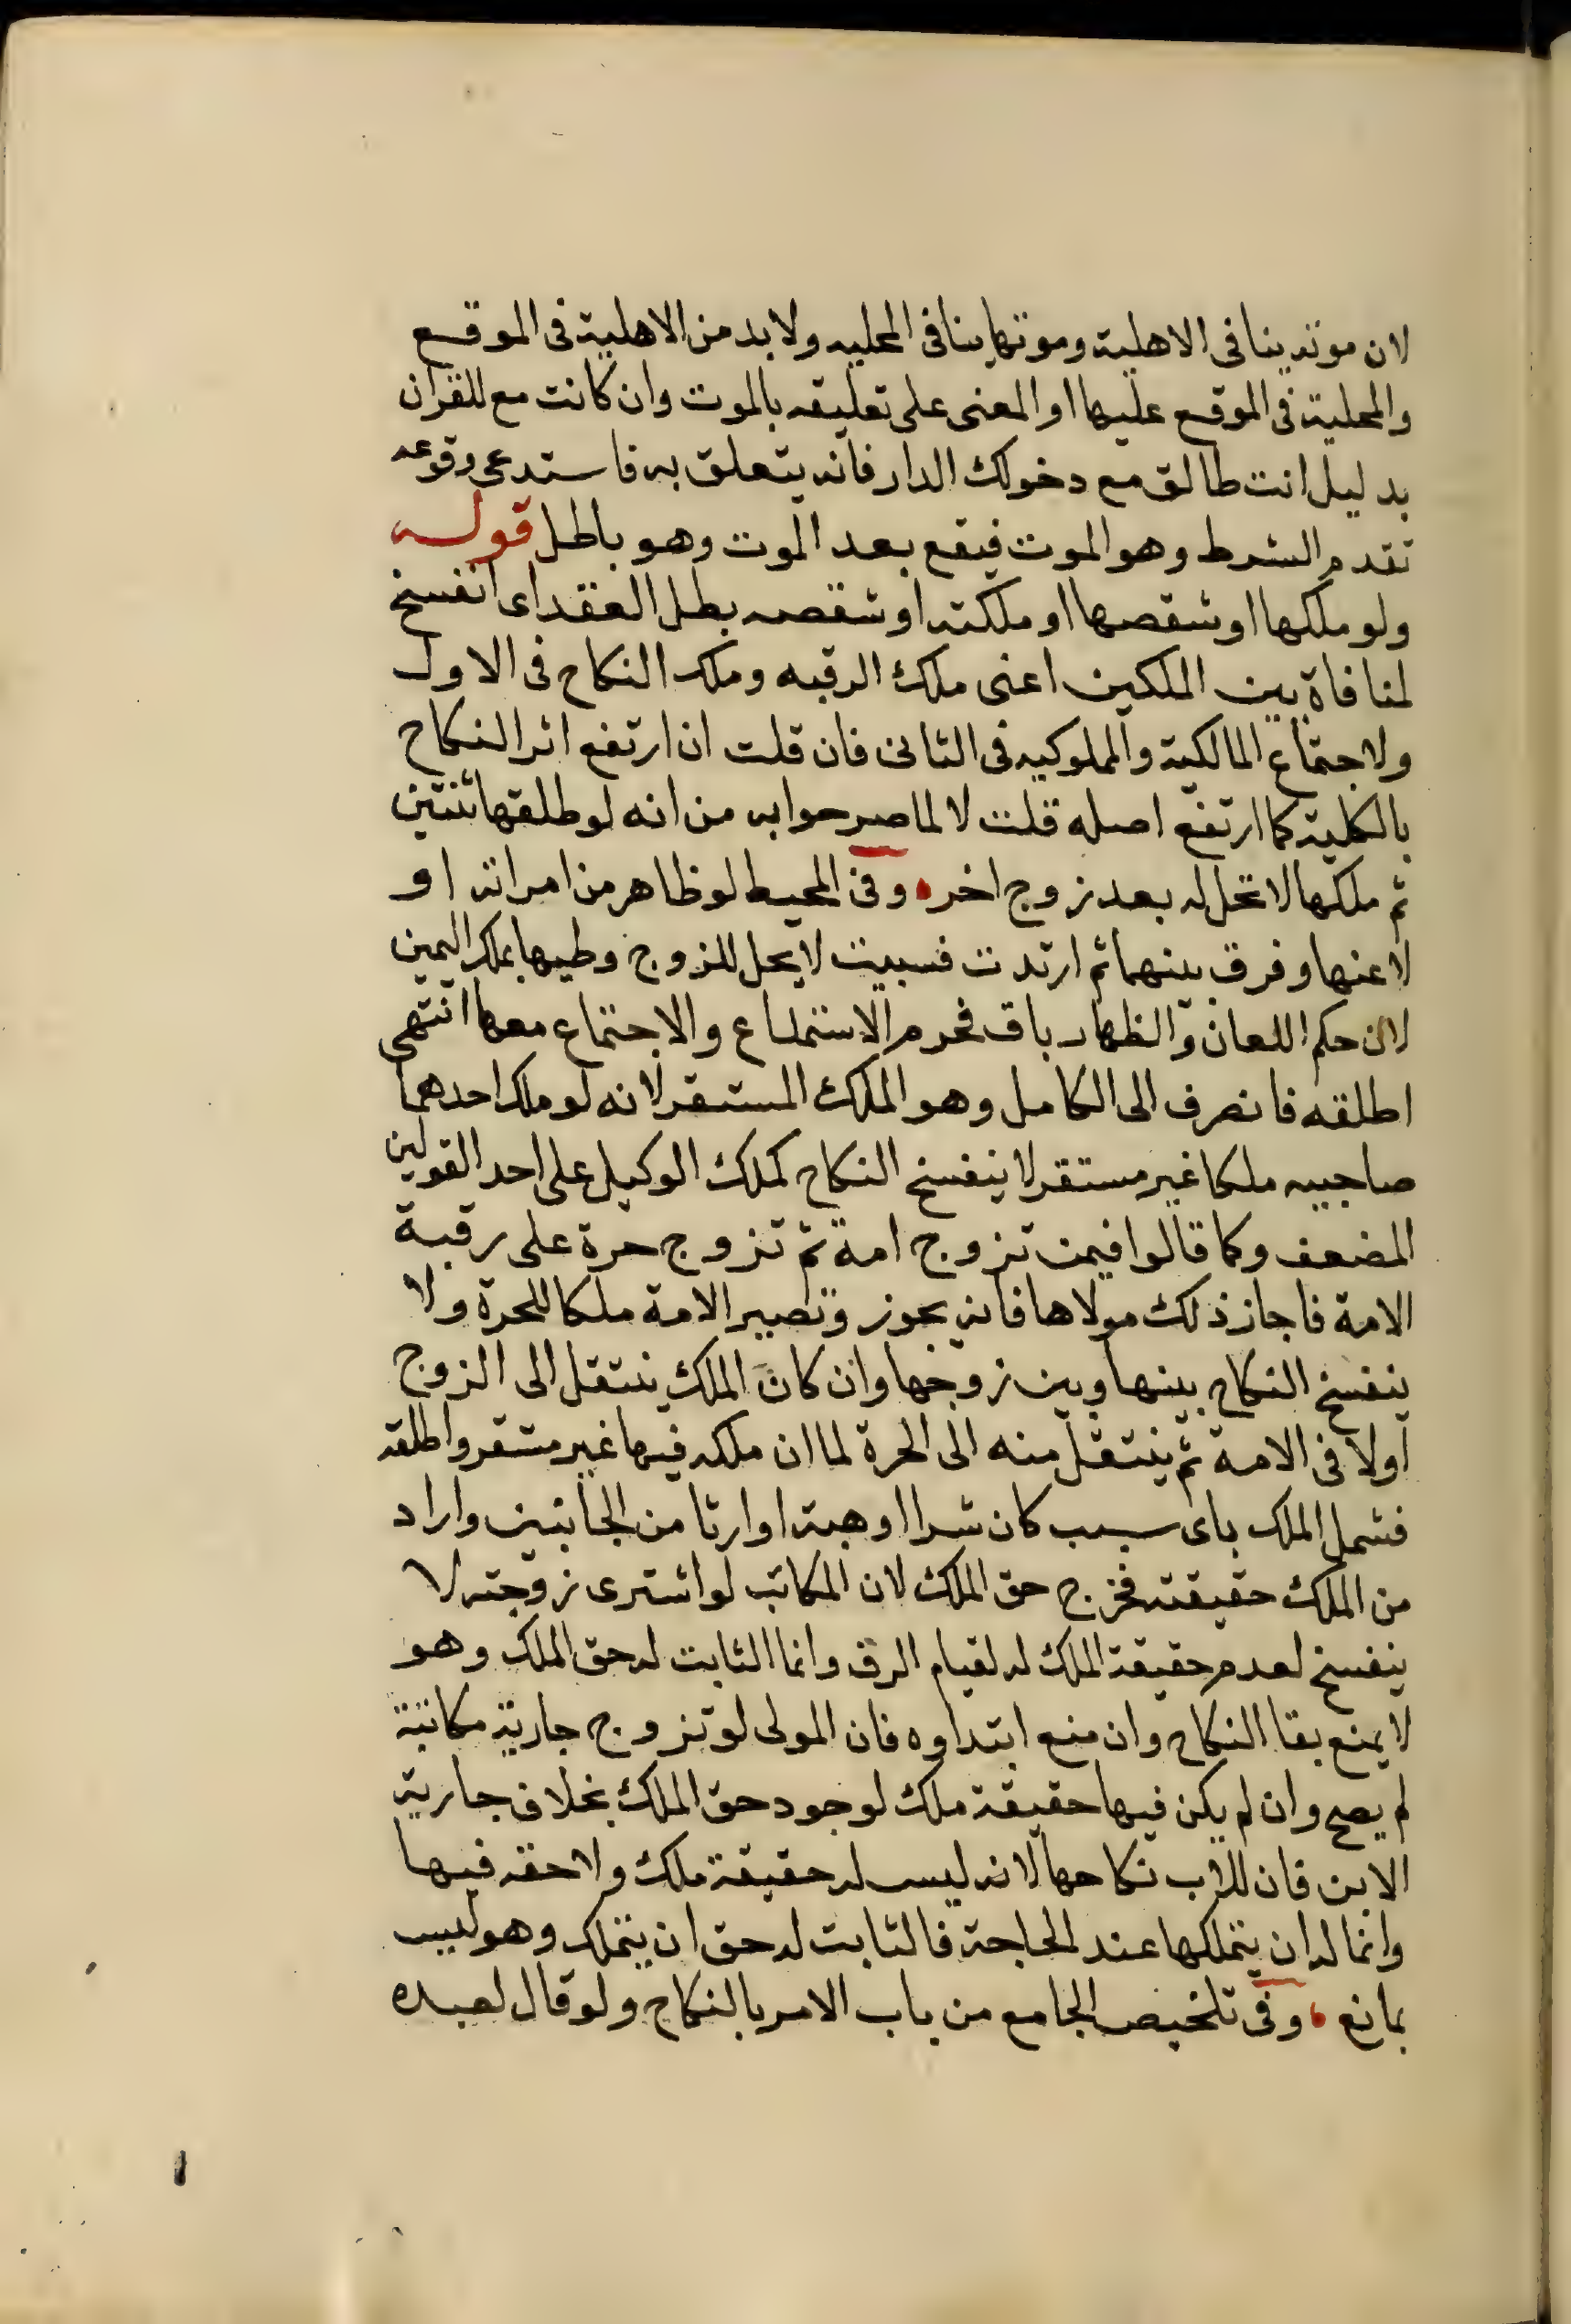 لان موته ينافى الاهلية وموتها ينافى المحليه ولا بد من الاهلية فى الموقع
والمحلية فى الموقع عليها او المعنى على تعليقه بالموت وان كانت مع للقران
بدليل انت طالق مع دخولك الدار فانه يتعلق به فاستدعى وقوعه
تقدم الشرط وهو الموت فيقع بعد الموت وهو باطل قوله
ولو ملكها او شقصها او ملكته او شقصه بطل العقد اى انفسخ
لمنافاة بين الملكين اعنى ملك الرقبه وملك النكاح فى الاول
ولاجتماع المالكية والمملوكيه فى الثانى فان قلت ان ارتفع اثر النكاح
بالكلية كما ارتفع اصله قلت لا لما صرحوا به من انه لو طلقها ثنتين
ثم ملكها لا تحل له بعد زوج اخر وفى المحيط لو ظاهر من امراته او
لاعنها وفرق بينهما ثم ارتدت فسبيت لا يحل للزوج وطيها بملك اليمين
لان حكم اللعان والظهار باق فحرم الاستمتاع والاجتماع معها انتهى
اطلقه فانصرف الى الكامل وهو الملك المستقر لانه لو ملك احدهما
صاحبه ملكا غير مستقر لا ينفسخ النكاح كملك الوكيل على احد القولين
المضعف وكما قالوا فيمن تزوج امة ثم تزوج حرة على رقبة
الامة فاجاز ذلك مولاها فانه يجوز وتصير الامة ملكا للحرة ولا
ينفسخ النكاح بينها وبين زوجها وان كان الملك ينتقل الى الزوج
اولا فى الامة ثم ينتقل منه الى الحرة لما ان ملكه فيها غير مستقر واطلقه
فشمل الملك باى سبب كان شرا او هبة او ارثا من الجانبين واراد
من الملك حقيقته فخرج حق الملك لان المكاتب لو اشترى زوجته لا
ينفسخ لعدم حقيقة الملك له لقيام الرق وانما الثابت له حق الملك وهو
لا يمنع بقا النكاح وان منع ابتداوه فان المولى لو تزوج جارية مكاتبة
لم يصح وان لم يكن فيها حقيقة ملك لوجود حق الملك بخلاف جارية
الابن فان للاب نكاحها لانه ليس له حقيقة ملك ولا حقه فيها
وانما له ان يتملكها عند الحاجة فالثابت له حق ان يتملك وهو ليس
بمانع وفى تلخيص الجامع من باب الامر بالنكاح ولو قال لعبده